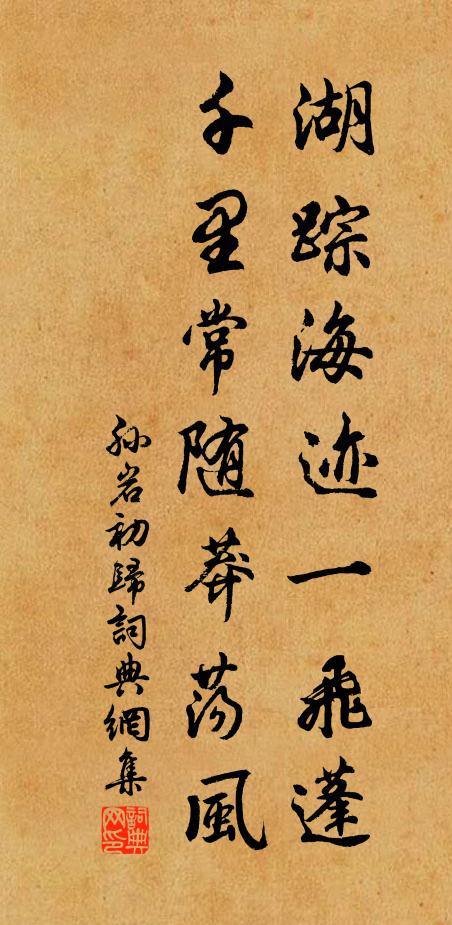 湖踪海迹一飛蓬
千里常随莽荡風
孙岩初歸詞典網集
詞典網印